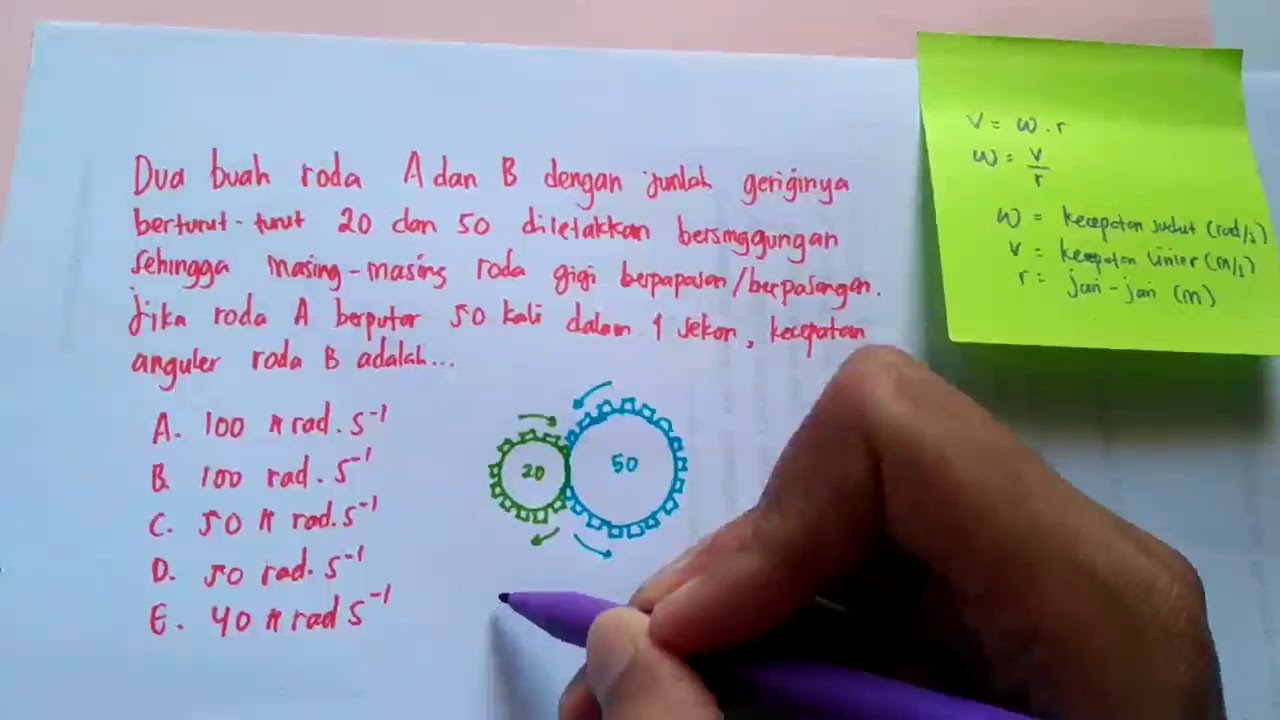 Dua buah roda A dan B dengan jumlah geriginya
berturut-turut 20 dan 50 diletakkan bersinggungan
sehingga masing-masing roda gigi berpapasan/berpasangan.
Jika roda A berputar 50 kali dalam 1 sekon, kecepatan
anguler roda B adalah...
A. 100 π rad. s⁻¹
B. 100 rad. s⁻¹
C. 50 π rad. s⁻¹
D. 50 rad. s⁻¹
E. 40 π rad s⁻¹
20
50
v = ω . r
ω = v/r
ω = kecepatan sudut (rad/s)
v = kecepatan linier (m/s)
r = jari-jari (m)